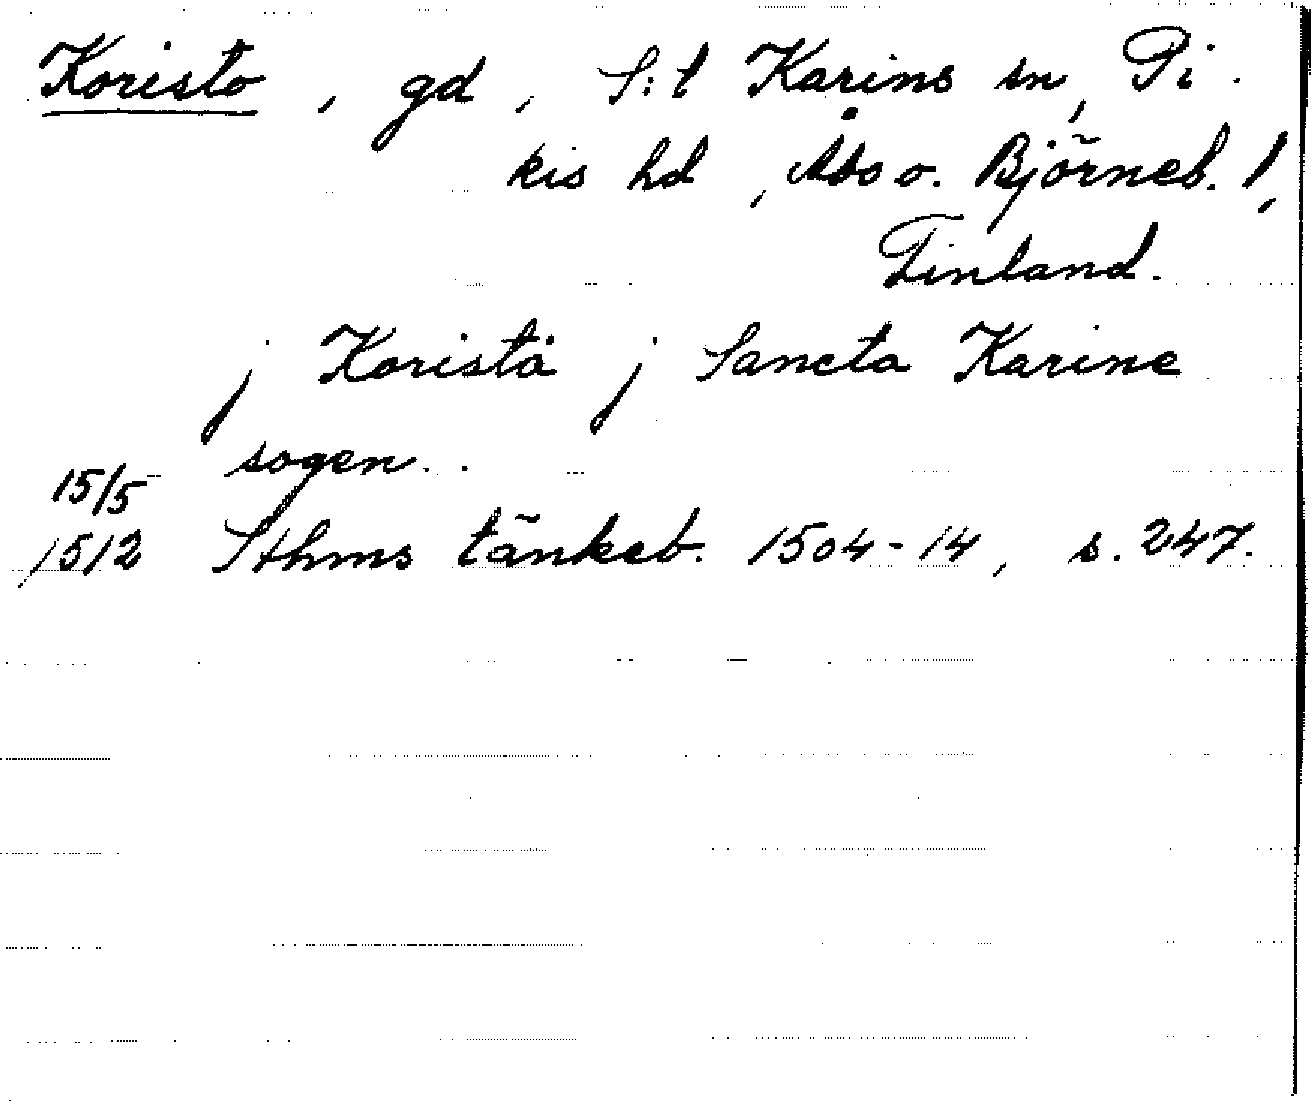 Koristo, gd, S:t Karins sn, Pi-
kis hd, Åbo o. Björneb. l,
Finland.
j Koristä j Sancta Karine
sogen..
15/5
1512 Sthms tänkeb. 1504-14, s. 247.